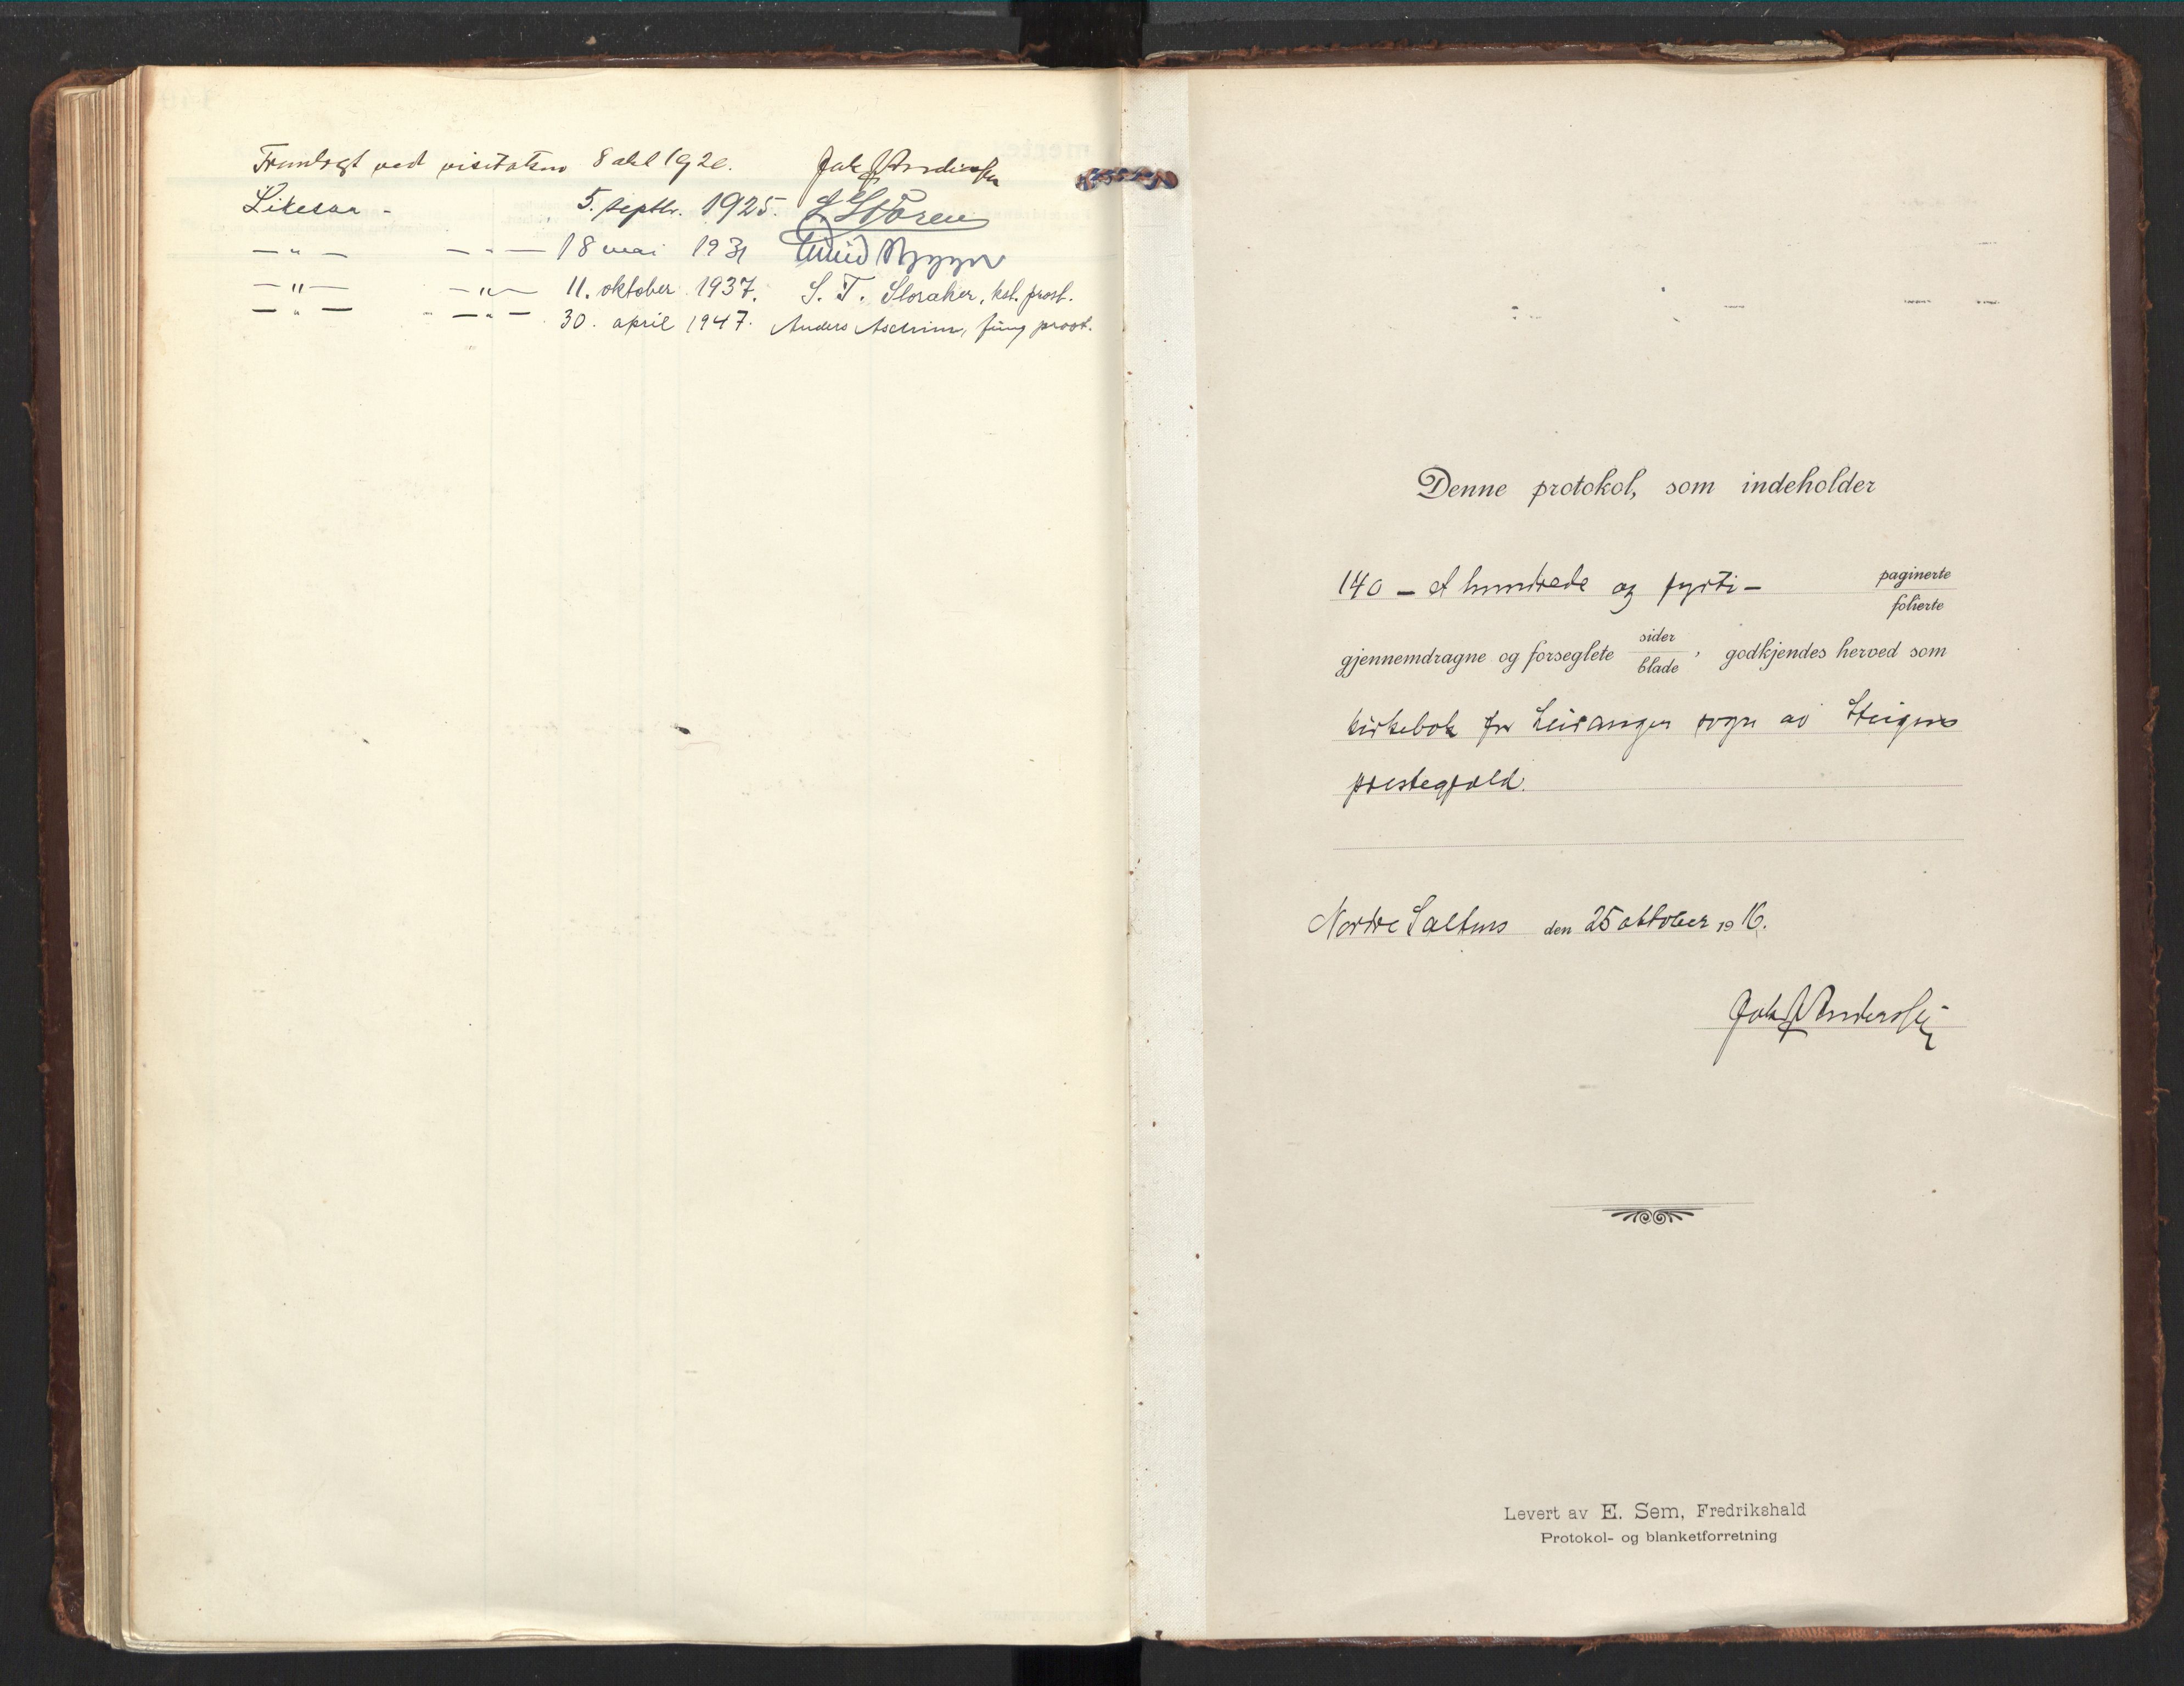 Fremlagt ved visitatsen 8 okt 1920. Jak J Anderssen
Likesaa - 5. septbr. 1925. S Støren
— " — — " — 18 mai 1931
— " — — " — 11. oktober 1937. S. T. Sloraker, kst. prost.
— " — — " — 30. april 1947. Anders Aschim, fung prost.
Denne protokol, som indeholder
140 — et hundrede og fyrti — paginerte
folierte
gjennemdragne og forseglete sider
blade, godkjendes herved som
kirkebok for Leiranger sogn av Steigens
prestegjeld.
Nordre Saltens den 25 oktober 1916.
Jak J Anderssen
Levert av E. Sem, Fredrikshald
Protokol- og blanketforretning